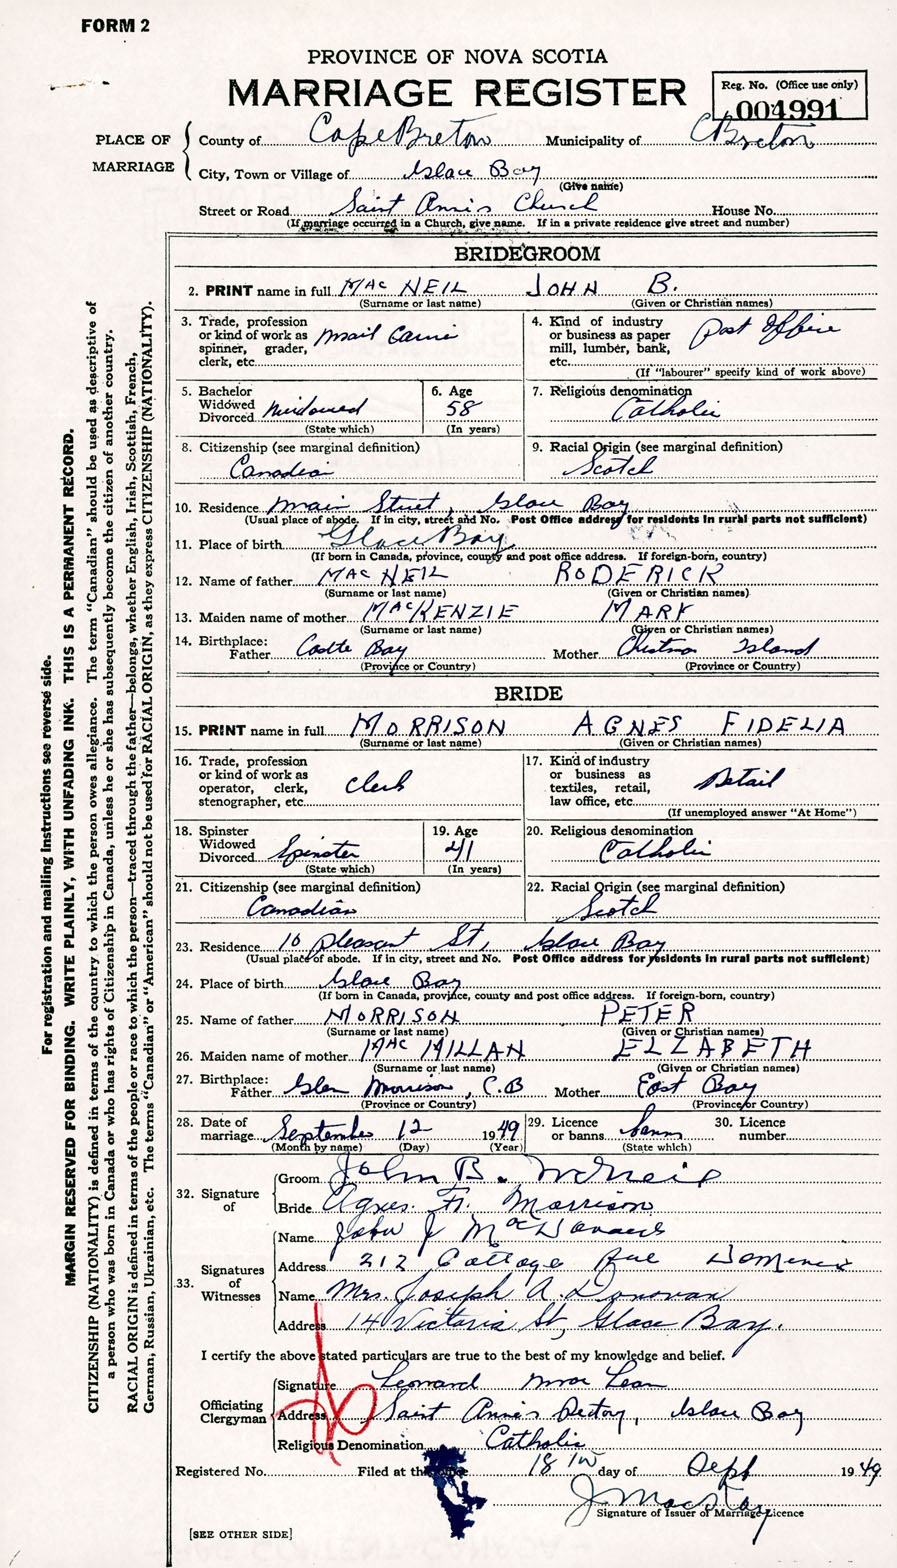 FORM 2
PROVINCE OF NOVA SCOTIA
MARRIAGE REGISTER
Reg. No. (Office use only)
004991
PLACE OF MARRIAGE
County of Cape Breton Municipality of C Breton
City, Town or Village of Glace Bay
(Give name)
Street or Road Saint Anne's Church House No.
(If marriage occurred in a Church, give name. If in a private residence give street and number)
BRIDEGROOM
2. PRINT name in full MAC NEIL JOHN B.
(Surname or last name) (Given or Christian names)
3. Trade, profession or kind of work as spinner, grader, clerk, etc. Mail Carrie
4. Kind of industry or business as paper mill, lumber, bank, etc. Post Office
(If "labourer" specify kind of work above)
5. Bachelor Widowed Divorced Widowed
(State which)
6. Age 58
(In years)
7. Religious denomination Catholic
8. Citizenship (see marginal definition) Canadian
9. Racial Origin (see marginal definition) Scotch
10. Residence Main Street, Glace Bay
(Usual place of abode. If in city, street and No. Post Office address for residents in rural parts not sufficient)
11. Place of birth Glace Bay
(If born in Canada, province, county and post office address. If foreign-born, country)
12. Name of father MAC NEIL RODERICK
(Surname or last name) (Given or Christian names)
13. Maiden name of mother MACKENZIE MARY
(Surname or last name) (Given or Christian names)
14. Birthplace: Father Bay Mother Island
(Province or Country) (Province or Country)
BRIDE
15. PRINT name in full MORRISON AGNES FIDELIA
(Surname or last name) (Given or Christian names)
16. Trade, profession or kind of work as operator, clerk, stenographer, etc. Clerk
17. Kind of industry or business as textiles, retail, law office, etc. Retail
(If unemployed answer "At Home")
18. Spinster Widowed Divorced Spinster
(State which)
19. Age 41
(In years)
20. Religious denomination Catholic
21. Citizenship (see marginal definition) Canadian
22. Racial Origin (see marginal definition) Scotch
23. Residence 10 pleasant St, Glace Bay
(Usual place of abode. If in city, street and No. Post Office address for residents in rural parts not sufficient)
24. Place of birth Glace Bay
(If born in Canada, province, county and post office address. If foreign-born, country)
25. Name of father MORRISON PETER
(Surname or last name) (Given or Christian names)
26. Maiden name of mother MAC MILLAN ELZABETH
(Surname or last name) (Given or Christian names)
27. Birthplace: Father Glen Morrison, C.B Mother East Bay
(Province or Country) (Province or Country)
28. Date of marriage September 12 1949
(Month by name) (Day) (Year)
29. Licence or banns banns
(State which)
30. Licence number
32. Signature of
Groom John B. McNeil
Bride Agnes F. Morrison
33. Signatures of Witnesses
Name John J MacDonald
Address 212 Cottage Ave Dominion
Name Mrs. Joseph A. Donovan
Address 14 Victoria St, Glace Bay.
I certify the above stated particulars are true to the best of my knowledge and belief.
Officiating Clergyman
Signature Leonard Mac Lean
Address Saint Anne's Rectory, Glace Bay
Religious Denomination Catholic
Registered No. Filed at the office 18 day of Sept 1949
J MacKay
Signature of Issuer of Marriage Licence
[SEE OTHER SIDE]
For registration and mailing instructions see reverse side.
MARGIN RESERVED FOR BINDING. WRITE PLAINLY, WITH UNFADING INK. THIS IS A PERMANENT RECORD.
CITIZENSHIP (NATIONALITY) is defined in terms of the country to which the person owes allegiance. The term "Canadian" should be used as descriptive of
a person who was born in Canada or who has rights of Citizenship in Canada, unless he or she has subsequently become the citizen of another country.
RACIAL ORIGIN is defined in terms of the people or race to which the person—traced through the father—belongs, whether English, Irish, Scottish, French,
German, Russian, Ukrainian, etc. The terms "Canadian" or "American" should not be used for RACIAL ORIGIN, as they express CITIZENSHIP (NATIONALITY).